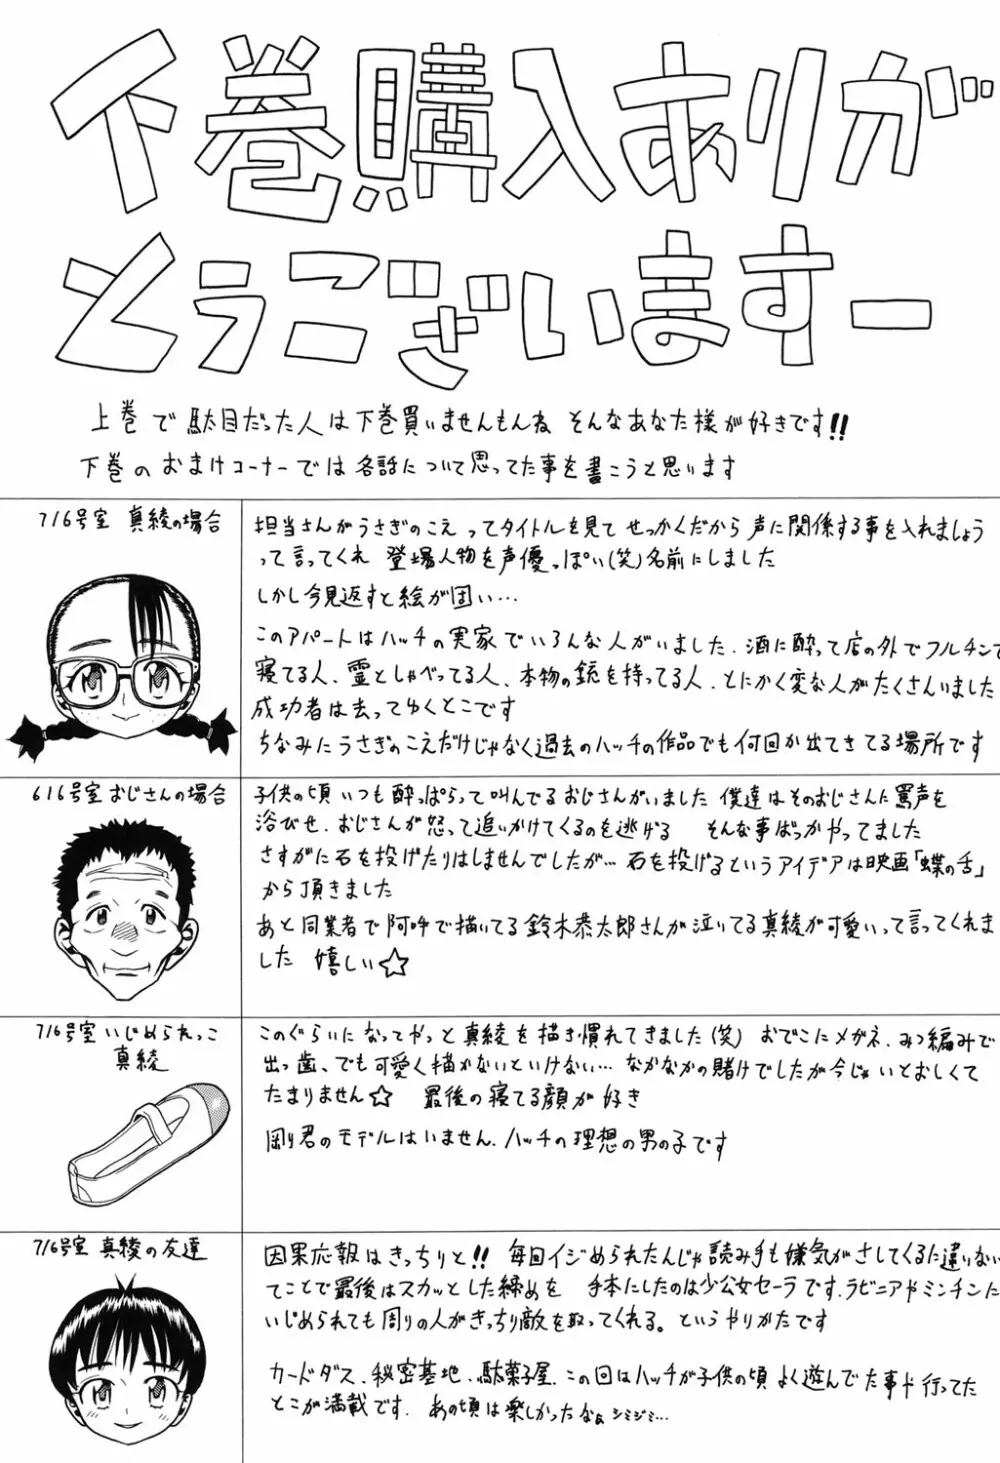 下巻購入ありが
とうございますー
上巻で駄目だった人は下巻買いませんもんね そんなあなた様が好きです!!
下巻のおまけコーナーでは各話について思ってた事を書こうと思います
716号室 真綾の場合
担当さんがうさぎのこえ ってタイトルを見て せっかくだから 声に関係する事を入れましょう
って言ってくれ 登場人物を声優っぽい(笑)名前にしました
しかし今見返すと絵が固い…
このアパートはハッチの実家でいろんな人がいました、酒に酔って店の外でフルチンで
寝てる人、霊としゃべってる人、本物の銃を持ってる人、とにかく変な人がたくさんいました
成功者は去ってゆくとこです
ちなみにうさぎのこえだけじゃなく過去のハッチの作品でも何回か出てきてる場所です
616号室 おじさんの場合
子供の頃 いつも酔っぱらって叫んでるおじさんがいました 僕達はそのおじさんに罵声を
浴びせ、おじさんが怒って追いかけてくるのを逃げる そんな事ばっかやってました
さすがに石を投げたりはしませんでしたが… 石を投げるというアイデアは映画「蝶の舌」
から頂きました
あと同業者で阿吽で描いてる鈴木恭太郎さんが泣いてる真綾が可愛いって言ってくれま
した 嬉しい☆
716号室 いじめられっこ
真綾
このぐらいになってやっと真綾を描き慣れてきました(笑) おでこにメガネ、みつ編みで
出っ歯、でも可愛く描かないといけない… なかなかの賭けでしたが今じゃいとおしくて
たまりません☆ 最後の寝てる顔が好き
剛君のモデルはいません、ハッチの理想の男の子です
716号室 真綾の友達
因果応報はきっちりと!! 毎回イジめられたんじゃ読み手も嫌気がさしてくるに違いない
てことで最後はスカッとした締めを 手本にしたのは少公女セーラです、ラビニアやミンチンに
いじめられても周りの人がきっちり敵を取ってくれる。というやりかたです
カードダス、秘密基地、駄菓子屋、この回はハッチが子供の頃 よく遊んでた事や行ってた
とこが満載です、あの頃は楽しかったなぁ シミジミ…